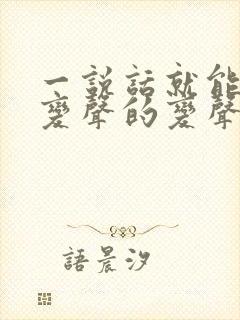 一説話就能
變聲的變聲
語晨汐